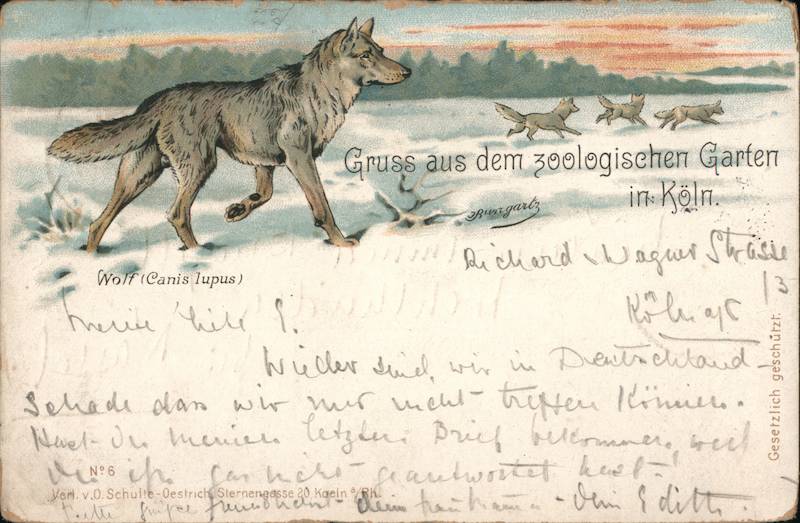 Gruss aus dem zoologischen Garten
in Köln.
Bungartz
Wolf (Canis lupus)
Richard Wagner Strasse
13
Köln a/R
Meine liebe E.
Wieder sind wir in Deutschland -
Schade dass wir uns nicht treffen können.
Hast du meinen letzten Brief bekommen, weil
du gar nicht geantwortet hast.
No 6
Verl. v. O. Schulte-Oestrich, Sternengasse 20, Koeln a/Rh.
Bitte grüße freundlichst deine - Dein Edith.
Gesetzlich geschützt.